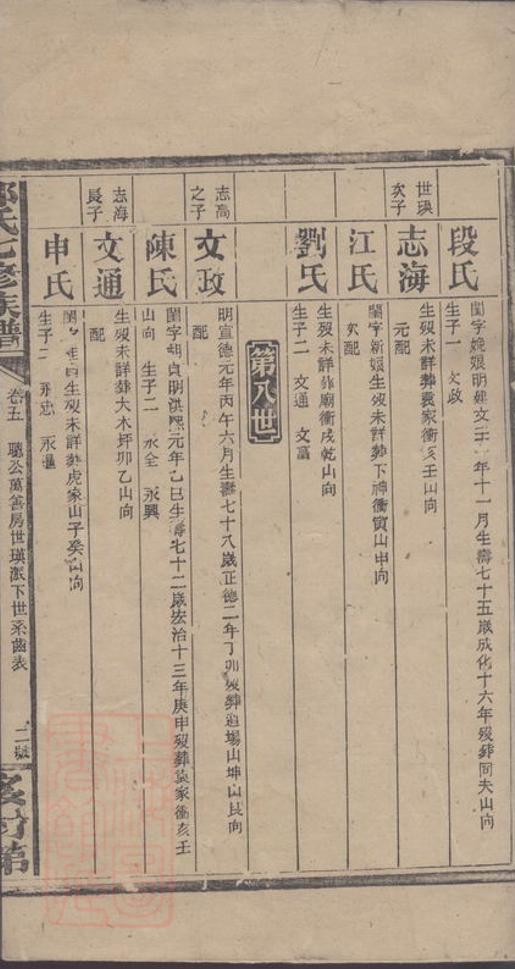 段氏
閨字娩娘明建文三年十一月生壽七十五歲成化十六年歿葬同夫山向
生子一 文政
世瑛次子
志海
生歿未詳葬袁家衝亥壬山向
元配
江氏
閨字新娘生歿未詳葬下神衝寅山申向
次配
劉氏
生歿未詳葬廟衝戌乾山向
生子二 文通 文富
第八世
志高之子
文政
明宣德元年丙午六月生壽七十八歲正德二年丁卯歿葬道場山坤山艮向
配
陳氏
閨字胡貞明洪熙元年乙巳生壽七十二歲宏治十三年庚申歿葬袁家衝亥壬
山向 生子二 永全 永興
志海長子
文通
生歿未詳葬大木坪卯乙山向
配
申氏
生歿未詳葬虎家山子癸山向
生子二 永忠
氏七修族譜
卷五 聰公萬善房世瑛派下世系齒表
二號